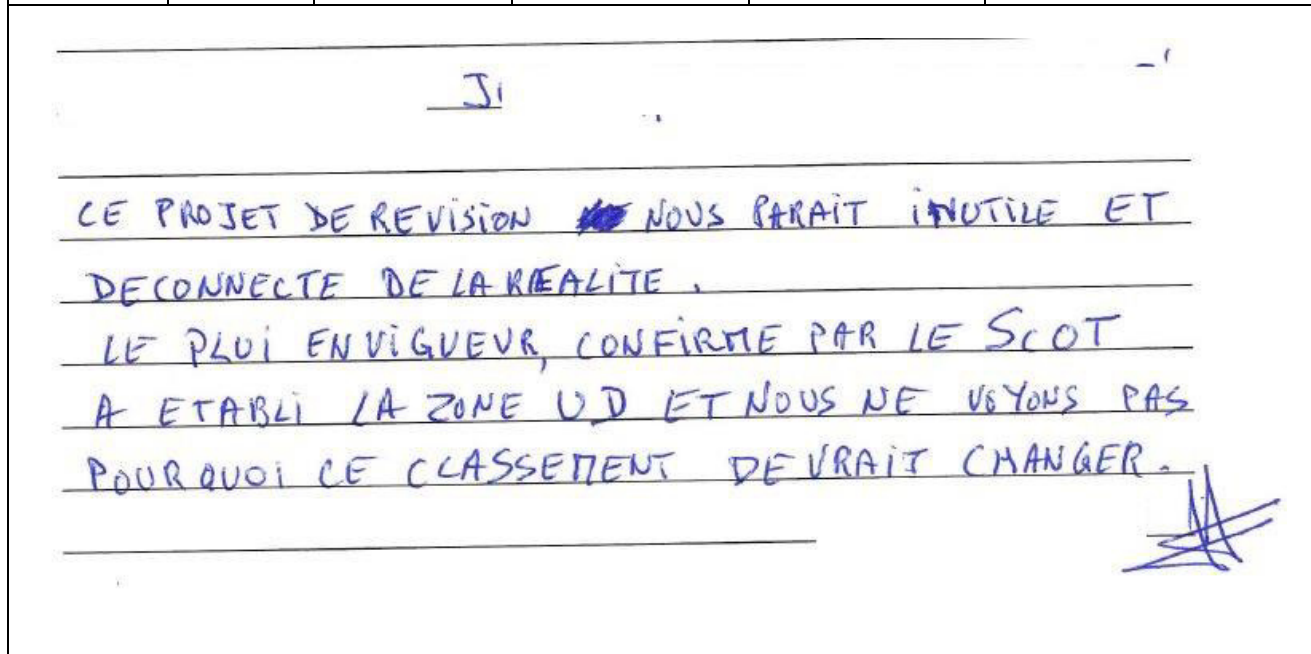 CE PROJET DE REVISION NOUS PARAiT iNUTiLE ET
DECONNECTE DE LA REALiTE.
LE PLUi EN ViGUEUR, CONFiRME PAR LE SCOT
A ETABLi LA ZONE UD ET NOUS NE VOYONS PAS
POURQUOi CE CLASSEMENT DEVRAiT CHANGER.